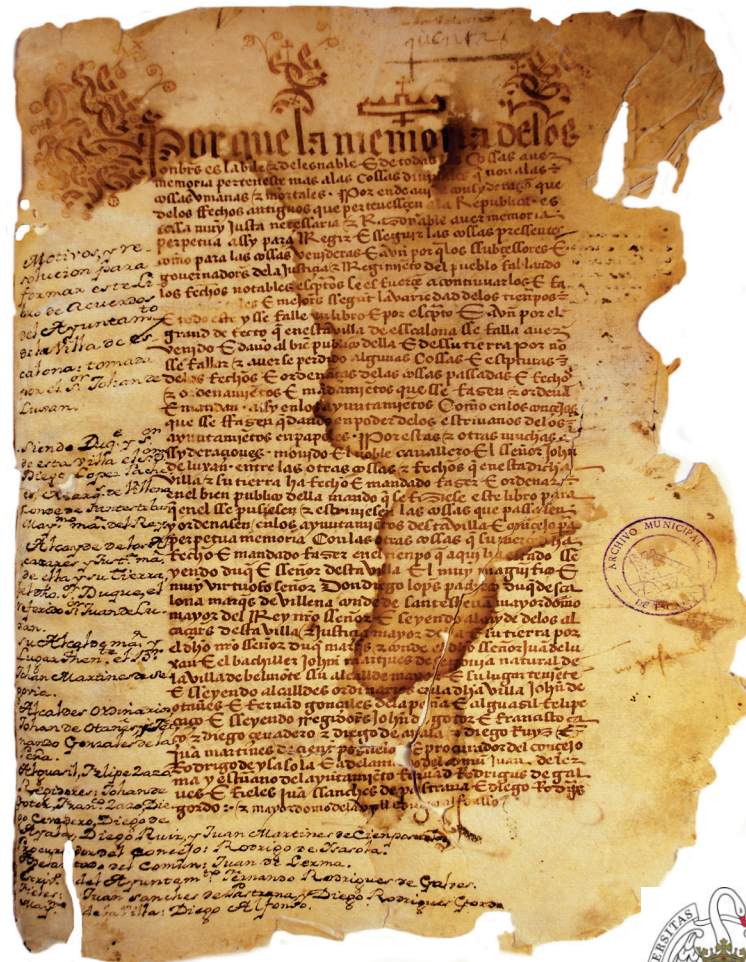 quenta
Por que la memoria delos
onbrs es labile & delesnable E de todas las Cossas aver
memoria perteneste mas alas cossas divinas q̃ non alas
cossas vmanas & mortales · Por ende avi consyderaçõ que
delos ffechos antiguos que pertenesçen ala Republica · es
cosa muy Justa necessaria & Razonable aver memoria
perpetua assy para Regir E sseguir las cossas pressentes
como para las cossas venideras E avn por q̃ los ssubçessores E
governadors dela Justiçia & Regimiẽto del pueblo fablando
los fechos notables escptos se es fuerçẽ a continuarlos E fa
les E mejors ssegũt la variedad delos tienpos
E todo esto y sse falle libro E por escpto E Avn por el
grand de fecto q̃ en esta villa de escalona sse falla aver
venido E daño al biẽ publico della E de ssu tierra por no
sse fallar & aver se perdido algunas Cossas E escpturas
delos fechos E ordenãças delas cossas passadas E fechos
& ordenamiẽtos E mãdamiẽtos que sse fazen & ordenã
E mandan · assy enlos ayuntamiẽtos Como enlos conçejos
que sse ffazen q̃dando en poder delos escrivanos delos
ayuntamiẽtos en papeles · Por estas & otras muchas
E ssyderaçones · movido El noble cavallero El sseñor Johñ
de luxan · entre las otras cossas & fechos q̃ en esta dicha
villa & su tierra ha fecho E mandado fazer E ordenar
en el bien publico della mando q̃ se fiziese este libro para
q̃ en el sse pusiesen & escriviesen las cossas que passasen
y ordenasen enlos ayuntamiẽtos desta villa E conçejo pa
perpetua memoria Con las otras cossas q̃ su merçed ha
fecho E mandado fazer en el tienpo q̃ aqui ha estado sse
yendo duq̃ E sseñor desta villa El muy magnifico E
muy virtuoso señor Don diego lops pacheco duq̃ desca
lona marq̃s de villena conde de santestevã mayordomo
mayor del Rey nr̃o sseñor E seyendo alcayde delos al
caçars desta villa E Justiçia mayor della E su tierra por
el dho nr̃o sseñor duq̃ marq̃s & conde el dho sseñor Juã de lu
xan E el bachiller Johñ martines de sopnija natural de
la villa de belmõte ssu alcallde mayor E su lugar teniẽte
E sseyendo alcalldes ordinarios en la dha villa Johñ de
otañes E fernãd gonçales dela peña E alguasil felipe
çaço E sseyendo rregidors Johñ de gotor E françisco ça
ço & diego çenadero & diego de ayala & diego Ruys E
Juã martines de çien poçuelo E procurador del conçejo
Rodrigo de ysasola E adelantado del comũ Juan de lez
ma y escrivano del ayuntamiẽto fernãd Rodrigus de gal
ves E fieles Juã ssanches de pastrana E diego Rodrigs
gordo · & mayordomo dela villa
Motivos, y re-
solucion para
formar este Li
bro de Acuerdos
del Ayuntamto
de la Villa de Es
calona: tomada
por el Sr. Johan de
Luxan.
Siendo Duqe. y Sr.
de esta Villa el Sr.
Diego Lopez Pache
co, Marqz. de Villena
Conde de Santesteban
Mayormo. mar. del Rey
Alcayde de los Al
cazares, y Justa. ma.
de esta y su Tierra,
pr. el dho. Sr. Duque, el
referido Sr. Juan de Lu-
xan.
Su Alcalde mar. y
Lugar Then. el Br.
Johan Martines de Se
opria.
Alcaldes Ordinarios
Johan de Otañes, y Fer
nando Gonzales de la
Peña.
Alguasil, Felipe Zazo
Regidores: Johan de
Gotor, Franco. Zazo, Die-
go Cenadero, Diego de
Ayala, Diego Ruiz, y Juan Martines de Cienpozuelo
Procurador del Concejo: Rodrigo de Isasola.
Adelantado del Comun: Juan de Lerma.
Escrivo. del Ayuntamto. Fernando Rodrigues de Galves.
Fieles: Juan Sanches de Pastrana, y Diego Rodrigues Gordo
Maymo. de la Villa: Diego Alfonso.
ARCHIVO MUNICIPAL
DE ESCALONA
ERSITAS